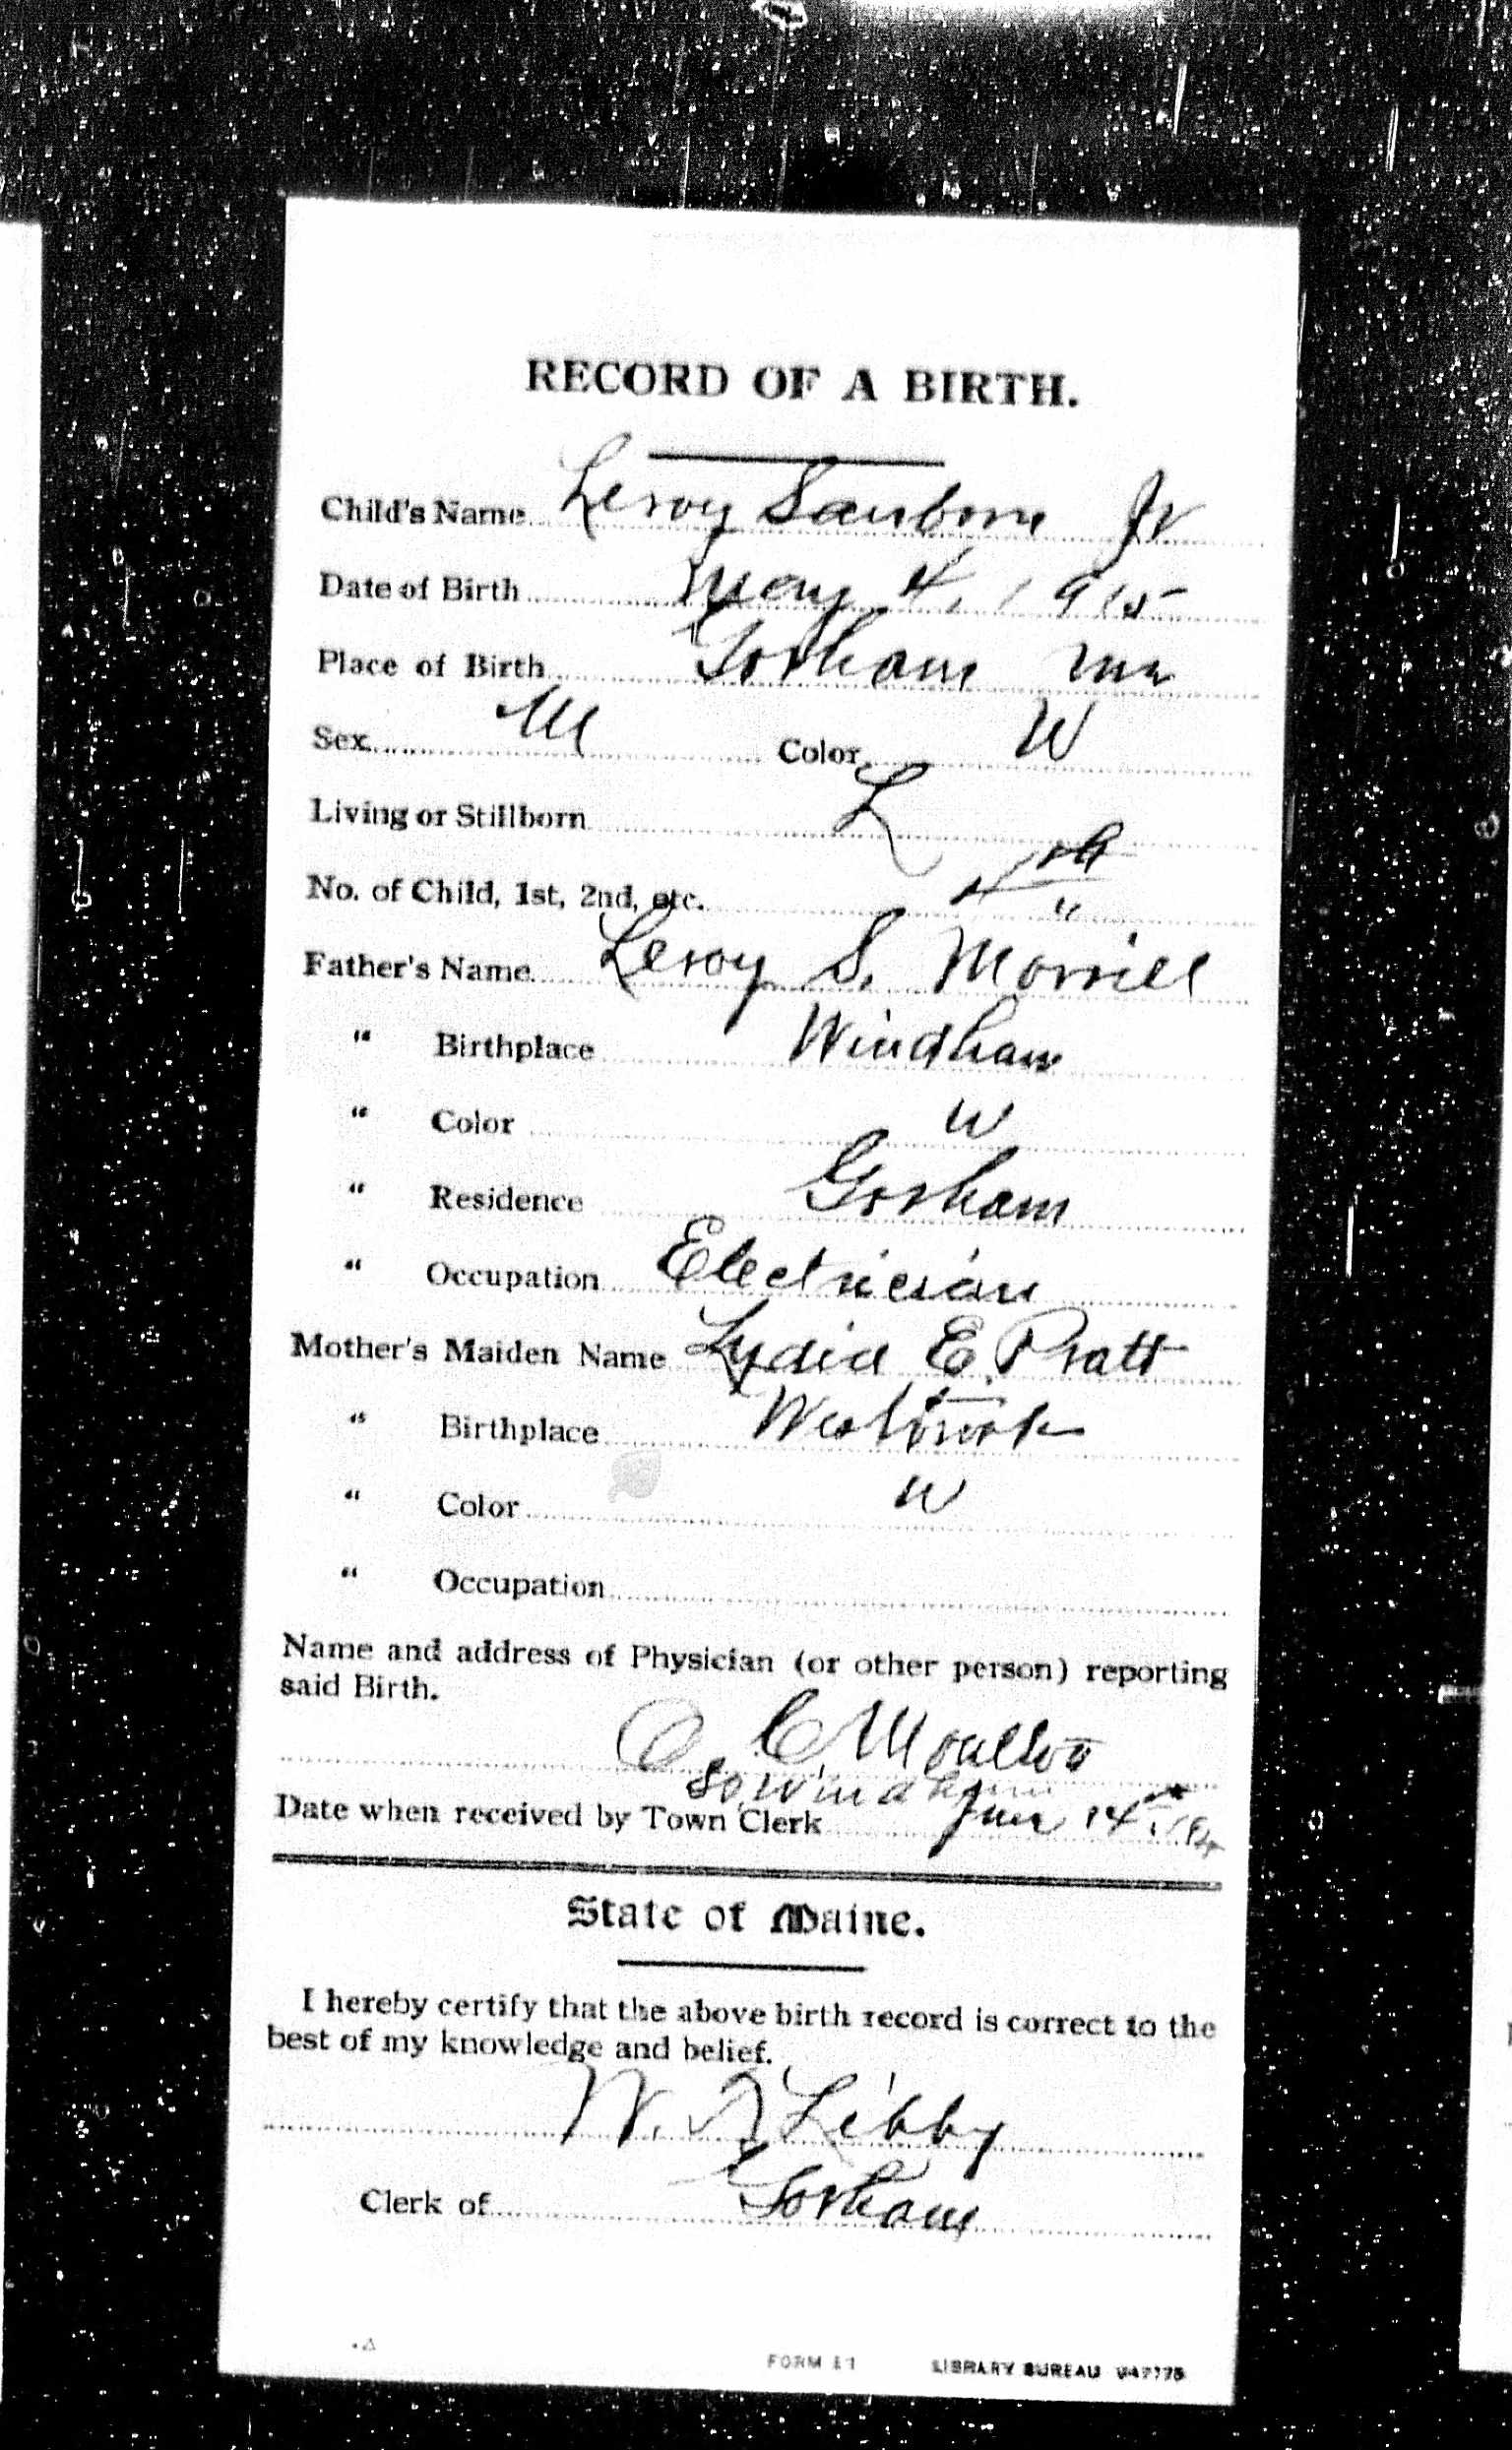 RECORD OF A BIRTH.
Child's Name Leroy Sanborn Jr
Date of Birth May 4, 1915
Place of Birth Gorham Me
Sex M Color W
Living or Stillborn L
No. of Child, 1st, 2nd, etc. 1st
Father's Name Leroy S. Morrill
" Birthplace Windham
" Color W
" Residence Gorham
" Occupation Electrician
Mother's Maiden Name Lydia E. Pratt
" Birthplace Westbrook
" Color W
" Occupation
Name and address of Physician (or other person) reporting
said Birth.
C Moulton
So. Windham
Date when received by Town Clerk 14
State of Maine.
I hereby certify that the above birth record is correct to the
best of my knowledge and belief.
W. Libby
Clerk of Gorham
FORM 11 LIBRARY BUREAU